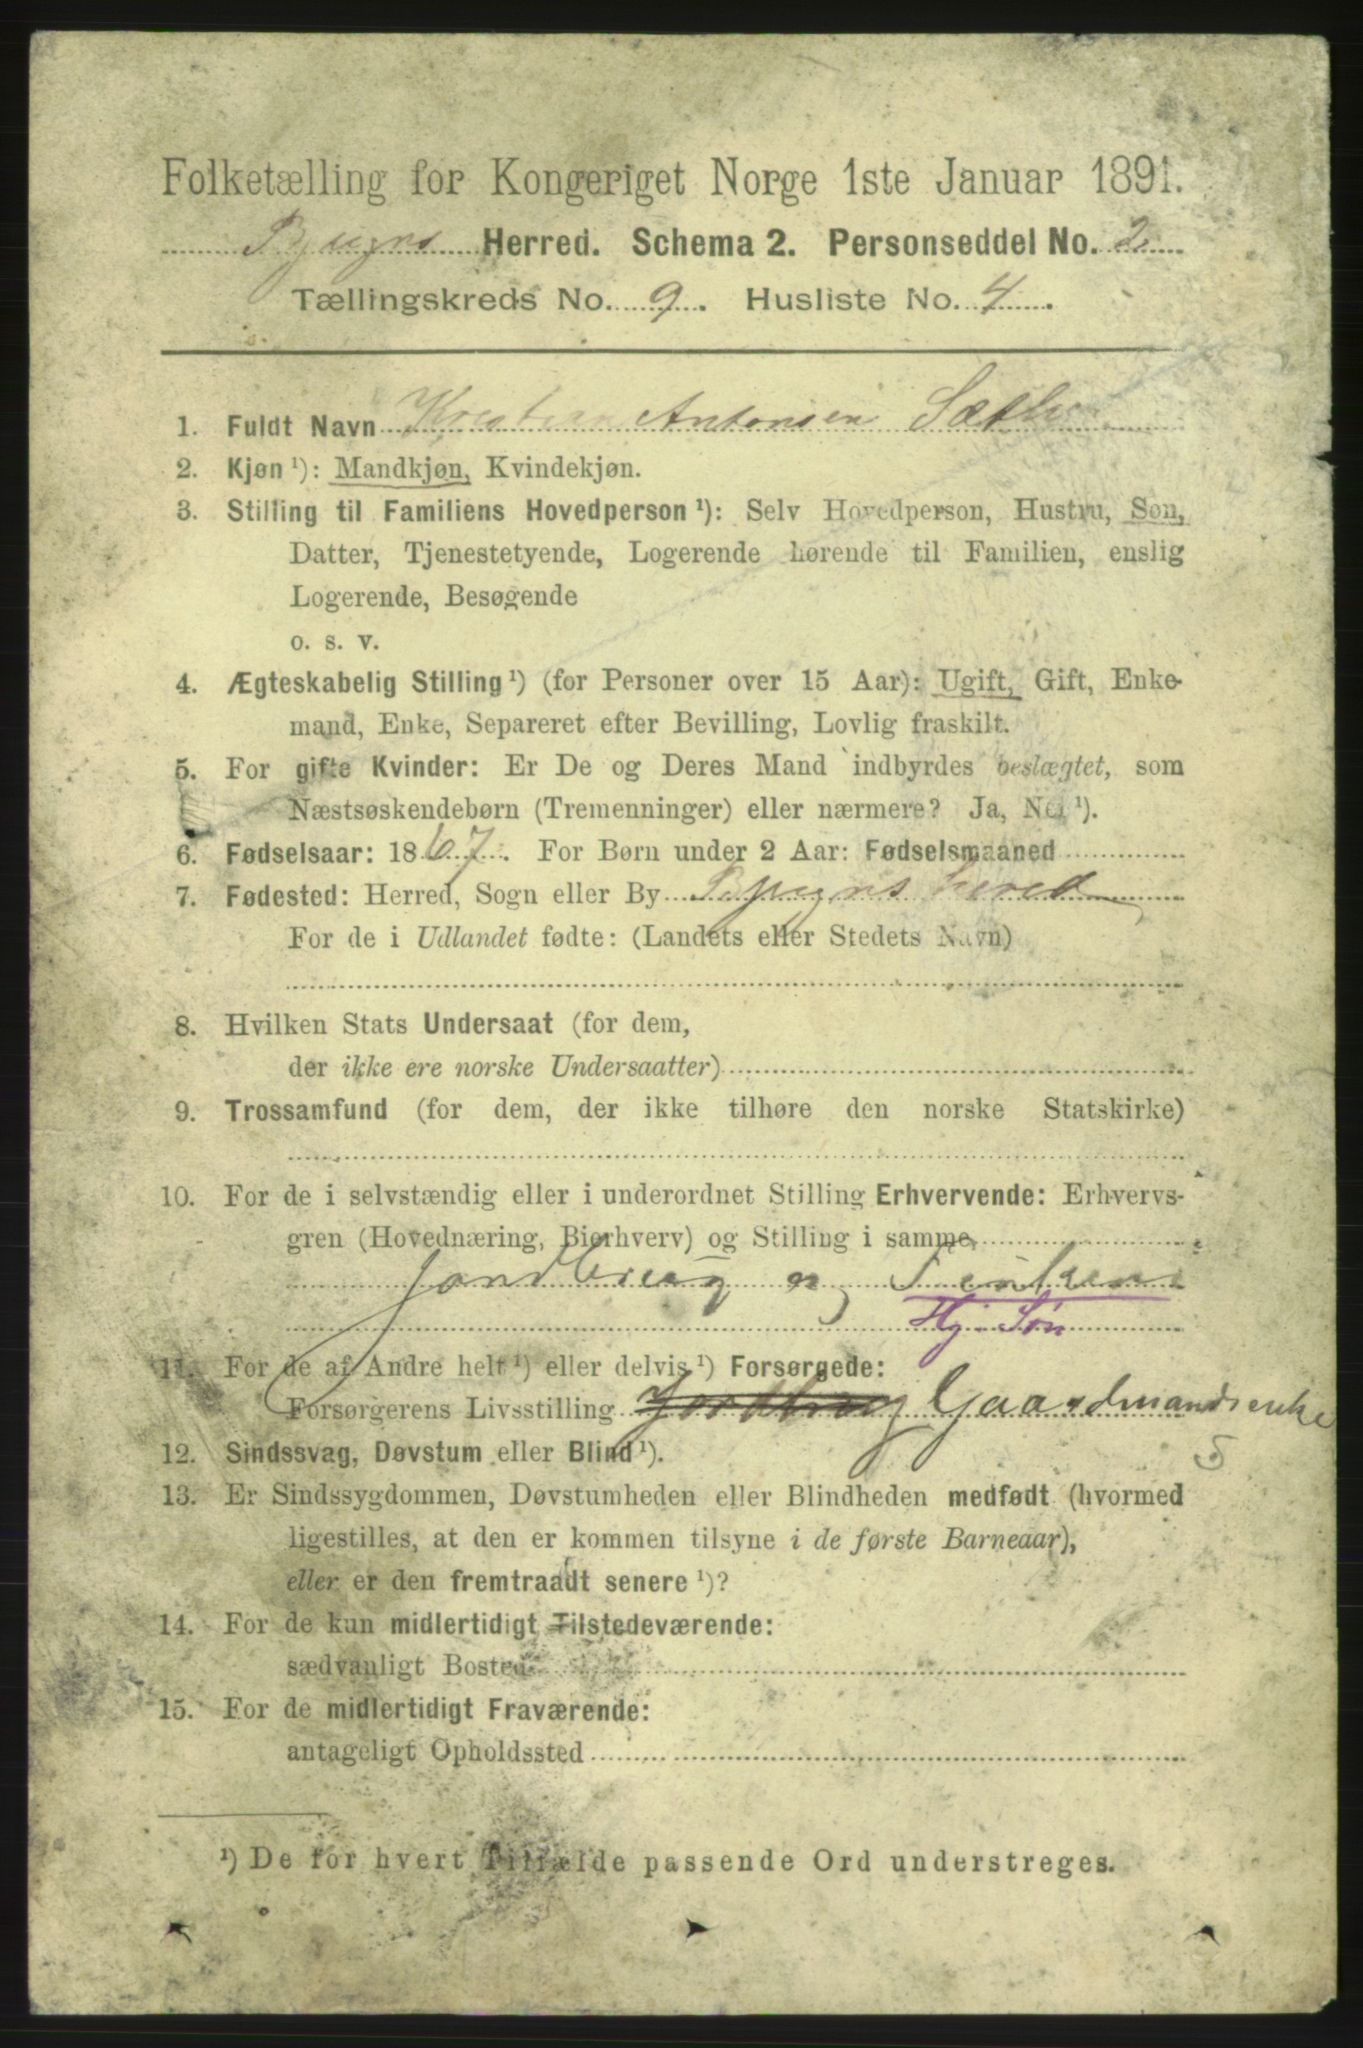 Folketælling for Kongeriget Norge 1ste Januar 1891.
Bjugns Herred. Schema 2. Personseddel No. 2.
Tællingskreds No. 9. Husliste No. 4.
1. Fuldt Navn Kristian Antonsen Sæther
2. Kjøn ¹): Mandkjøn, Kvindekjøn.
3. Stilling til Familiens Hovedperson ¹): Selv Hovedperson, Hustru, Søn,
Datter, Tjenestetyende, Logerende hørende til Familien, enslig
Logerende, Besøgende
o. s. v.
4. Ægteskabelig Stilling ¹) (for Personer over 15 Aar): Ugift, Gift, Enke-
mand, Enke, Separeret efter Bevilling, Lovlig fraskilt.
5. For gifte Kvinder: Er De og Deres Mand indbyrdes beslægtet, som
Næstsøskendebørn (Tremenninger) eller nærmere? Ja, Nei ¹).
6. Fødselsaar: 1867. For Børn under 2 Aar: Fødselsmaaned
7. Fødested: Herred, Sogn eller By Bjugns herred
For de i Udlandet fødte: (Landets eller Stedets Navn)
8. Hvilken Stats Undersaat (for dem,
der ikke ere norske Undersaatter)
9. Trossamfund (for dem, der ikke tilhøre den norske Statskirke)
10. For de i selvstændig eller i underordnet Stilling Erhvervende: Erhvervs-
gren (Hovednæring, Bierhverv) og Stilling i samme
Jordbrug og
Hj. Søn
11. For de af Andre helt ¹) eller delvis ¹) Forsørgede:
Forsørgerens Livsstilling Jordbrug Gaardmandsenke
12. Sindssvag, Døvstum eller Blind ¹).
5
13. Er Sindssygdommen, Døvstumheden eller Blindheden medfødt (hvormed
ligestilles, at den er kommen tilsyne i de første Barneaar),
eller er den fremtraadt senere ¹)?
14. For de kun midlertidigt Tilstedeværende:
sædvanligt Bosted
15. For de midlertidigt Fraværende:
antageligt Opholdssted
¹) De for hvert Tilfælde passende Ord understreges.